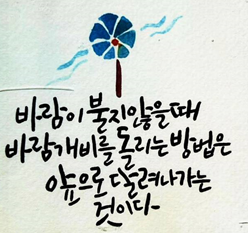 바람이 불지않을때
바람개비를 돌리는 방법은
앞으로 달려나가는
것이다